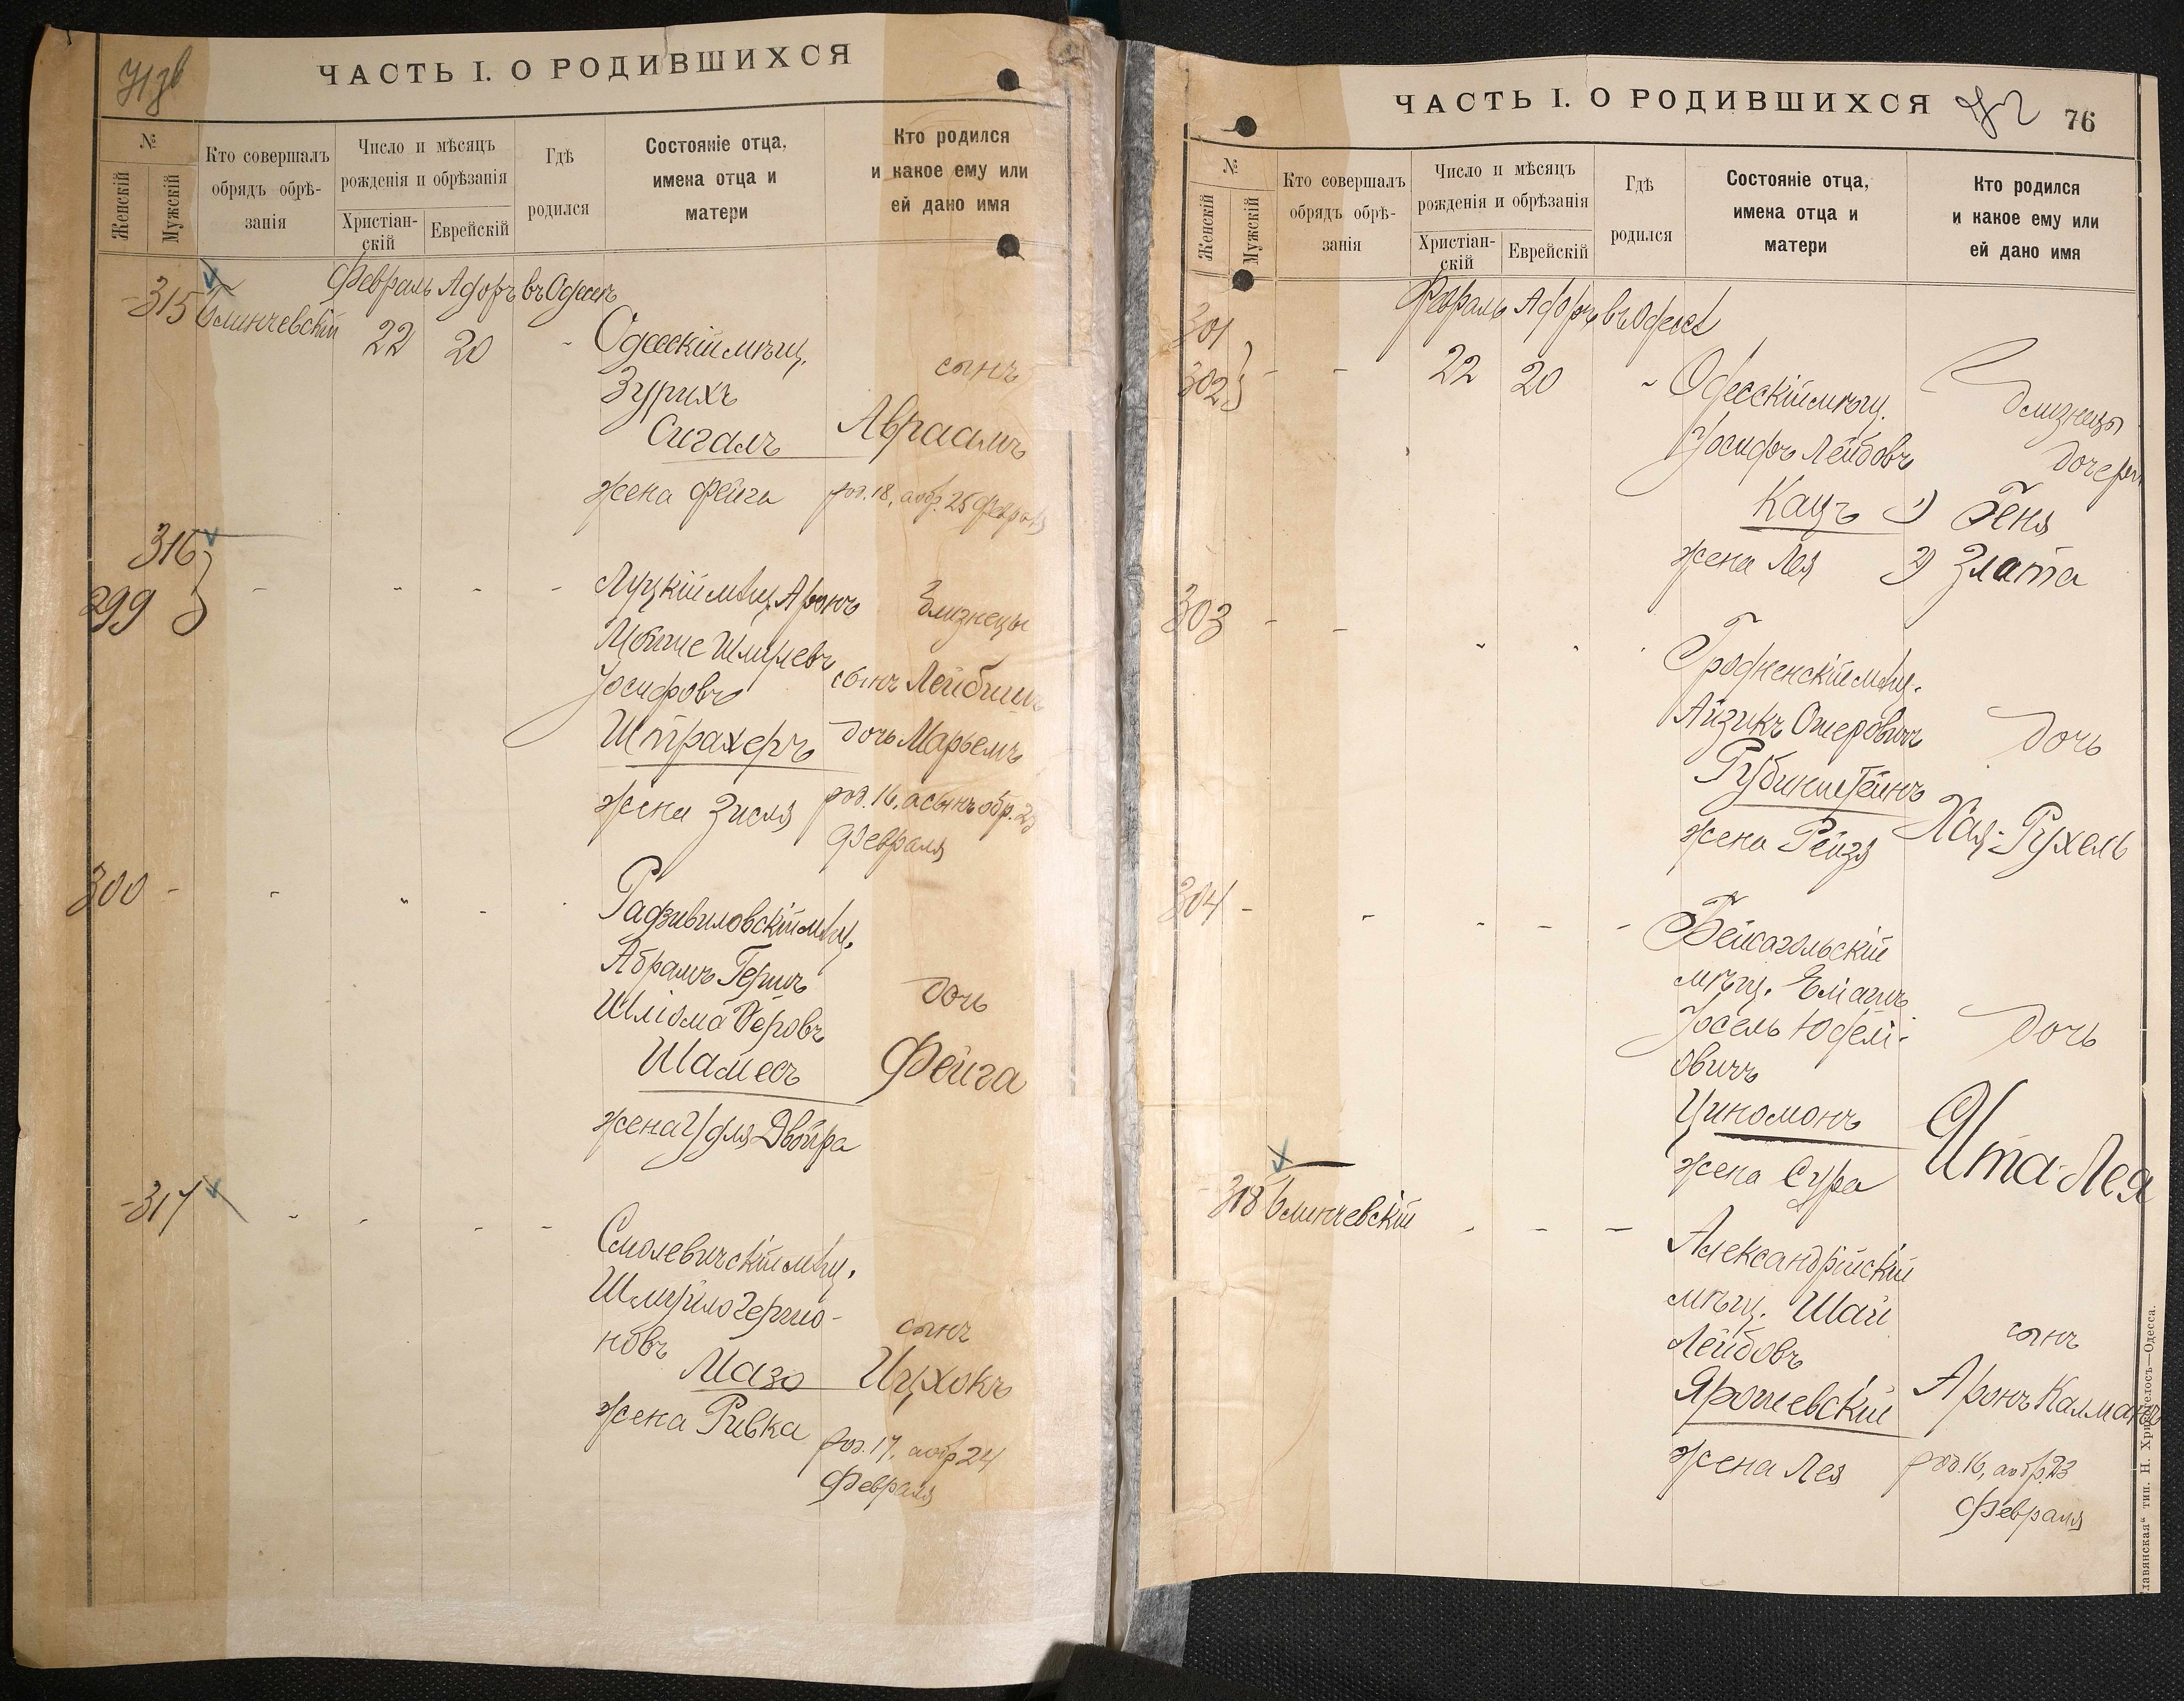 ЧАСТЬ I. О РОДИВШИХСЯ
№
Женскій
Мужскій
Кто совершалъ
обрядъ обрѣ-
занія
Число и мѣсяцъ
рожденія и обрѣзанія
Христіан-
скій
Еврейскій
Гдѣ
родился
Состояніе отца,
имена отца и
матери
Кто родился
и какое ему или
ей дано имя
Февраль Адоръ въ Одессѣ
315 Блинчевскій 22 20 - Одесскій мѣщ.
сынъ
Зурихъ
Сигалъ Авраамъ
жена Фейга род. 18, а обр. 25 Февраля
316
299 - - - - Луцкій мѣщ. Аронъ близнецы
Мойше Шмулевъ
Іосифовъ сынъ Лейбишъ
Штрахеръ дочь Марьемъ
жена Зисля род. 16, а сынъ обр. 23
Февраля
300 - - - - Радзивиловскій мѣщ.
Абрамъ Гершъ дочь
Шліома
Шамесъ Фейга
жена Удля Двойра
317 - - - - Смолевичскій мѣщ.
Шмуйло Гершо-
новъ сынъ
Мазо Ицхокъ
жена Ривка род. 17, а обр 24
Февраля
ЧАСТЬ I. О РОДИВШИХСЯ 76
№
Женскій
Мужскій
Кто совершалъ
обрядъ обрѣ-
занія
Число и мѣсяцъ
рожденія и обрѣзанія
Христіан-
скій
Еврейскій
Гдѣ
родился
Состояніе отца,
имена отца и
матери
Кто родился
и какое ему или
ей дано имя
Февраль Адоръ въ Одессѣ
301
302 - - 22 20 - Одесскій мѣщ. близнецы
Іосифъ Лейбовъ дочери
Кацъ 1) Геня
жена Лея 2) Злата
303 - - - - Гродненскій мѣщ.
Айзикъ Ошеровичъ дочь
Рубинштейнъ
жена Рейзя Хая-Рухель
304 - - - - - Бейсагольскій
мѣщ. Еліашъ
Іосель Юдел-
овичъ дочь
Циномонъ
жена Сура Ита-Лея
318 Блинчевскій - - - Александрійскій
мѣщ. Шай
Лейбовъ сынъ
Ярошевскій Аронъ Калманъ
жена Лея род. 16, а обр. 23
Февраля
"Славянская" тип. Н. Хрисогелосъ—Одесса.